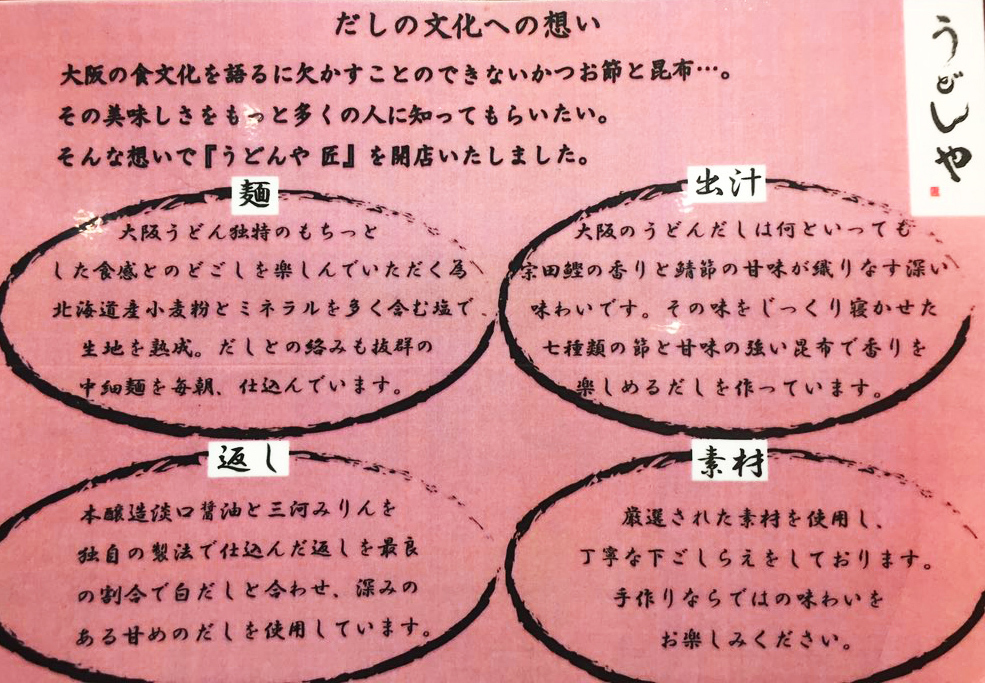 だしの文化への想い
大阪の食文化を語るに欠かすことのできないかつお節と昆布…。
その美味しさをもっと多くの人に知ってもらいたい。
そんな想いで『うどんや 匠』を開店いたしました。
うどんや
麺
大阪うどん独特のもちっと
した食感とのどごしを楽しんでいただく為、
北海道産小麦粉とミネラルを多く含む塩で、
生地を熟成。だしとの絡みも抜群の
中細麺を毎朝、仕込んでいます。
出汁
大阪のうどんだしは何といっても
宗田鰹の香りと鯖節の甘味が織りなす深い
味わいです。その味をじっくり寝かせた
七種類の節と甘味の強い昆布で香りを
楽しめるだしを作っています。
返し
本醸造淡口醤油と三河みりんを
独自の製法で仕込んだ返しを最良
の割合で白だしと合わせ、深みの
ある甘めのだしを使用しています。
素材
厳選された素材を使用し、
丁寧な下ごしらえをしております。
手作りならではの味わいを
お楽しみください。